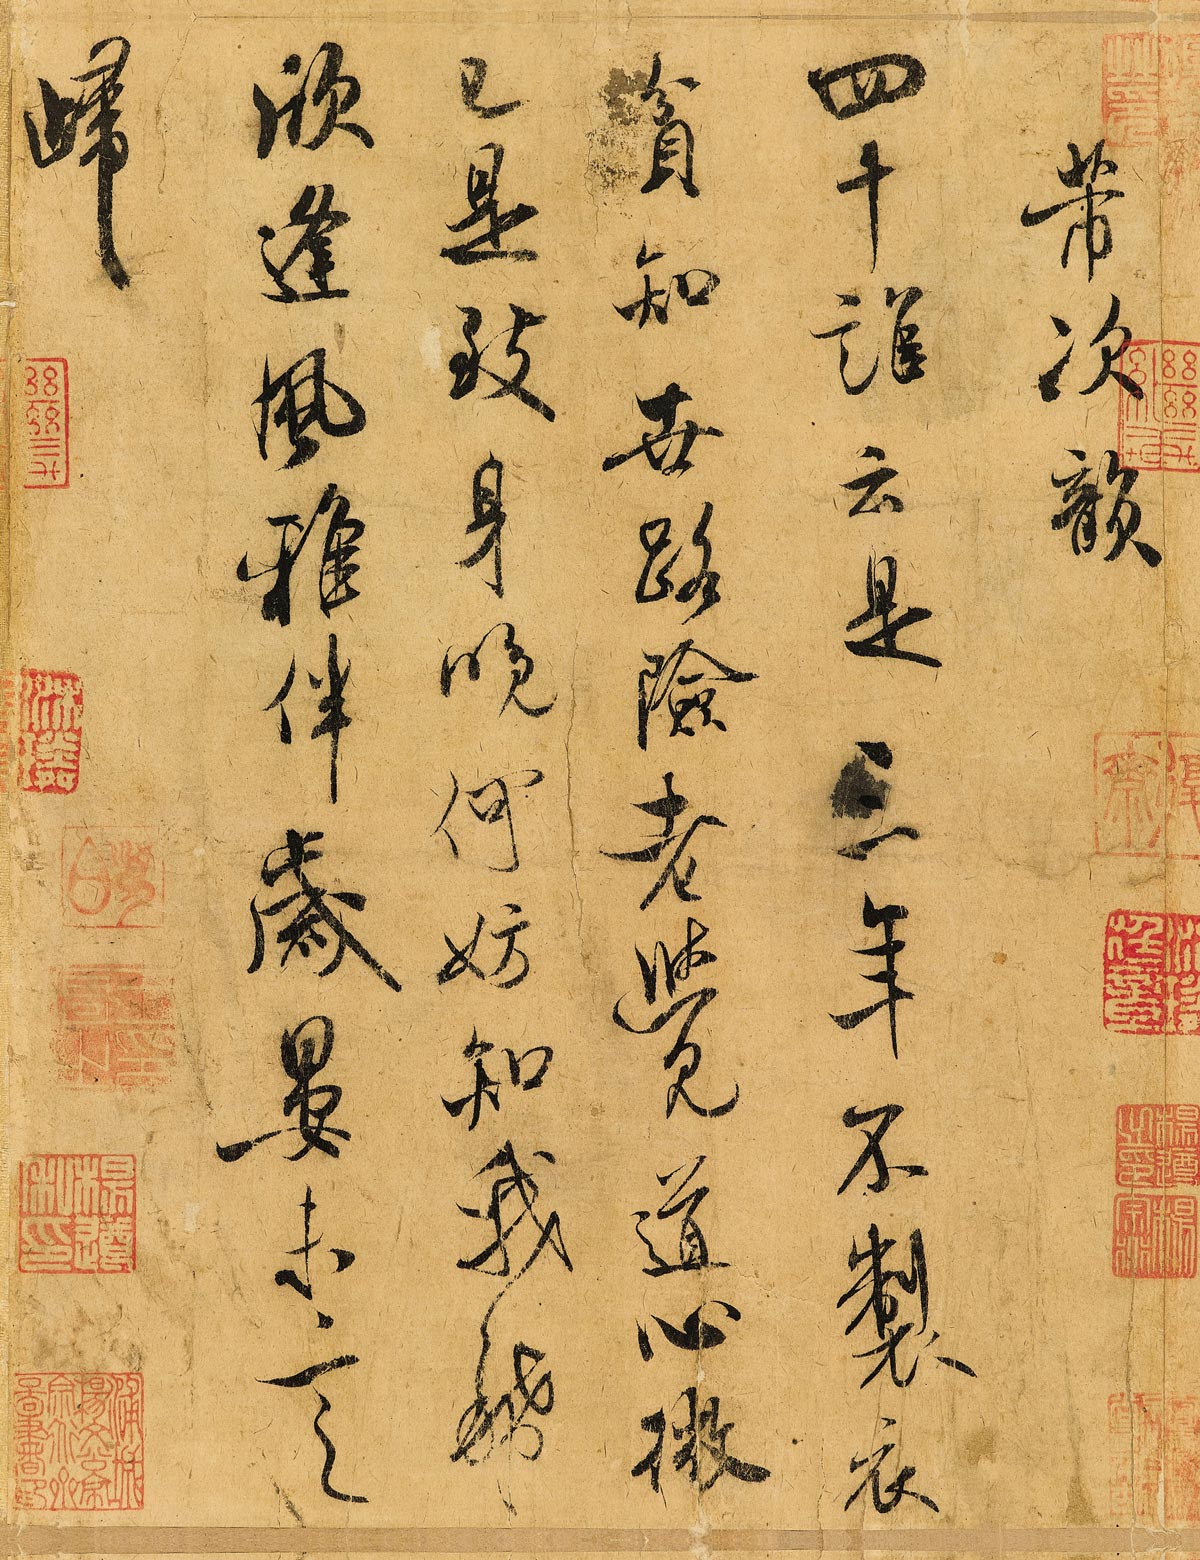 芾次韻
四十誰云是三年不製衣
貧知世路險老覺道心微
已是致身晚何妨知我稀
欣逢風雅伴歲晏未言
歸